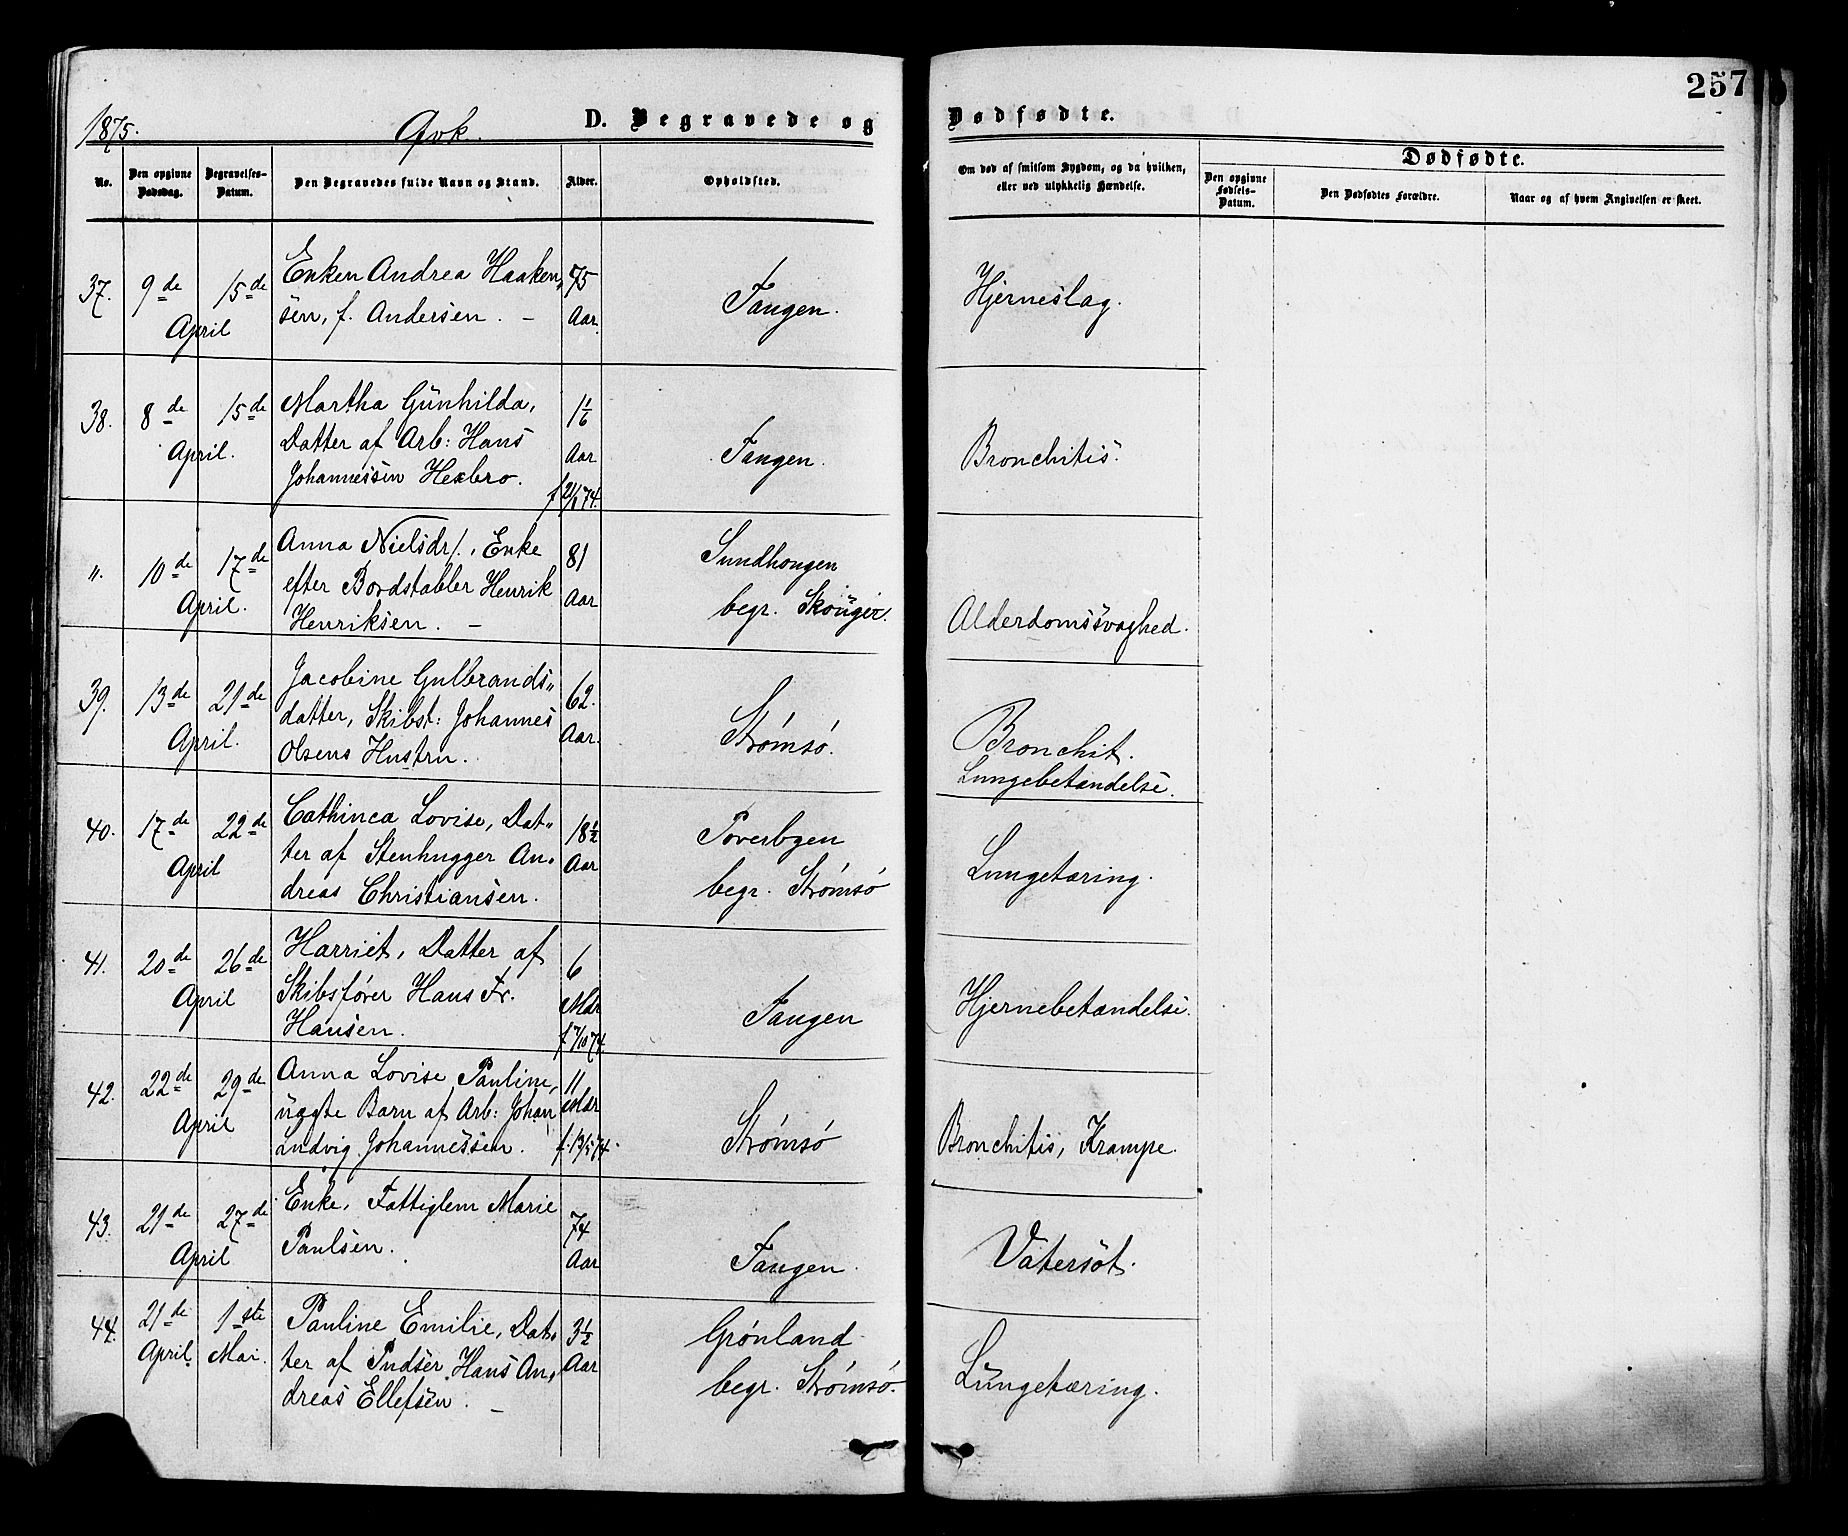 257
1875. Qvk. D. Begravede og Dødfødte.
No.
Den opgivne Dødsdag.
Begravelses-Datum.
Den Begravedes fulde Navn og Stand.
Alder.
Opholdsted.
Om død af smitsom Sygdom, og da hvilken,
eller ved ulykkelig Hændelse.
Dødfødte.
Den opgivne Fødsels-Datum.
Den Dødfødtes Forældre.
Naar og af hvem Angivelsen er skeet.
37. 9de 15de April
Enken Andrea Haaken,
sen, f. Andersen. —
75 Aar.
Tangen.
Hjerneslag.
38. 8de 15de April.
Martha Gunhilda,
Datter af Arb: Hans
Johannessen Hexbro.
1 1/6 Aar f 21/1 74.
Tangen.
Bronchitis.
". 10de 17de April.
Anna Nielsdr/., Enke
efter Bordstabler Henrik
Henriksen. —
81 Aar
Sundhougen
begr. Skouger.
Alderdomssvaghed.
39. 13de 21de April.
Jacobine Gulbrands"
datter, Skibst: Johannes
Olsens Hustru.
62. Aar.
Strømsø.
Bronchit.
Lungebetændelse.
40. 17de 22de April
Cathinca Lovise, Dat"
ter af Stenhugger An,
dreas Christiansen.
18 1/2 Aar
Toverbyen
begr. Strømsø
Lungetæring.
41. 20de 26de April
Harriet, Datter af
Skibsfører Hans Fr.
Hansen.
6 Mdr f 7/10 74.
Tangen
Hjernebetændelse.
42. 22de 29de April
Anna Lovise Pauline,
uægte Barn af Arb: Johan
Ludvig Johannessen.
11 Mdr f. 13/5 74.
Strømsø
Bronchitis, Krampe.
43. 21de 27de April
Enke, Fattiglem Marie
Paulsen.
74 Aar
Tangen.
Vatersot.
44. 21de April. 1ste Mai.
Pauline Emilie, Dat,
ter af Pudser Hans An,
dreas Ellefsen. —
3 1/2 Aar
Grønland
begr. Strømsø.
Lungetæring.